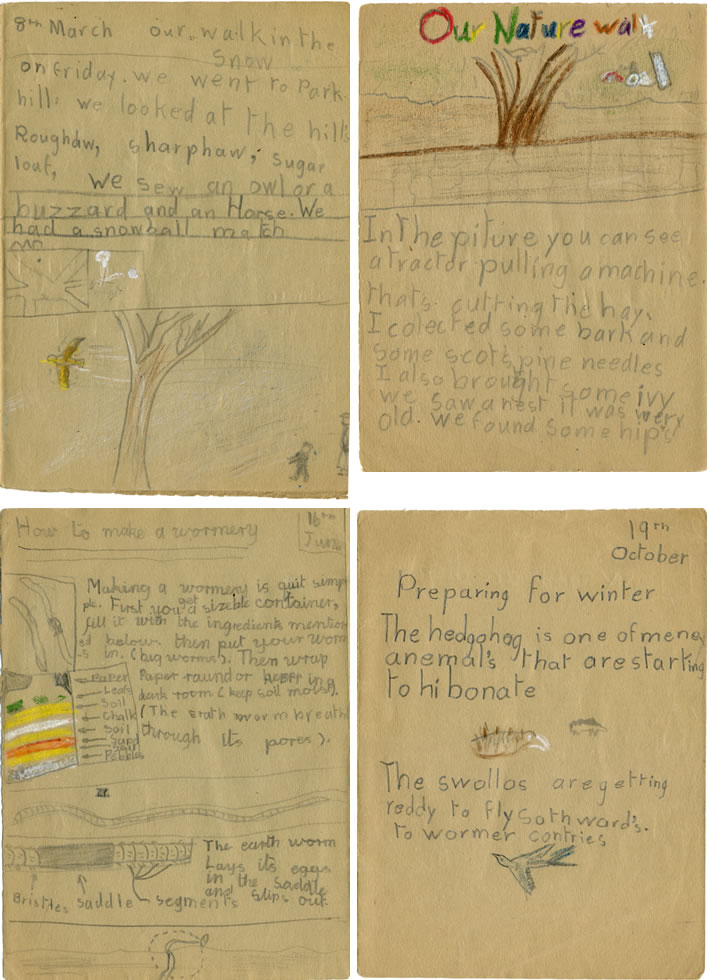 8th March our walk in the
snow
on friday. we went to Park
hill. we looked at the hills
Roughdaw, sharphaw, sugar
loaf, we sew an owl or a
buzzard and an Horse. We
had a snowball match
Our Nature walk
In the piture you can see
a tractor pulling a machine.
thats cutting the hay.
I colected some bark and
some scots pine needles
I also brought some ivy
we saw a nest it was very
old. we found some hips
How to make a wormery
16th
June
Making a wormery is quit simp
ple. First you get a sizeble container,
fill it with the ingredients mention
ed below. then put your worm
s in. (big worms). Then wrap
Paper round or keep in
dark room (keep soil moist).
(The erath worm breath
through its pores).
Paper
Leafs
Soil
Chalk
Soil
Sand
Soil
Pebbles
The earth worm
Lays its eggs
in the saddle
and slips out.
Bristles saddle segments
19th
October
Preparing for winter
The hedgohog is one of meney
anemal's that are starting
to hibonate
The swollos are getting
reddy to fly sothward's.
to wormer contries